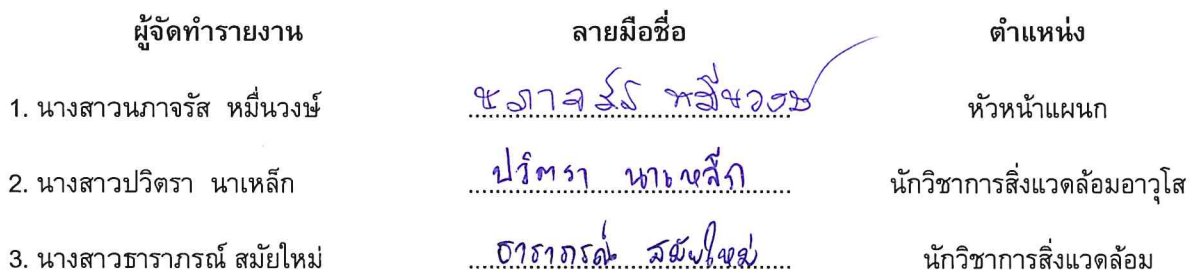 ผู้จัดทำรายงาน ลายมือชื่อ ตำแหน่ง
1. นางสาวนภาจรัส หมื่นวงษ์ นภาจรัส หมื่นวงษ์ หัวหน้าแผนก
2. นางสาวปวิตรา นาเหล็ก ปวิตรา นาเหล็ก นักวิชาการสิ่งแวดล้อมอาวุโส
3. นางสาวธาราภรณ์ สมัยใหม่ ธาราภรณ์ สมัยใหม่ นักวิชาการสิ่งแวดล้อม